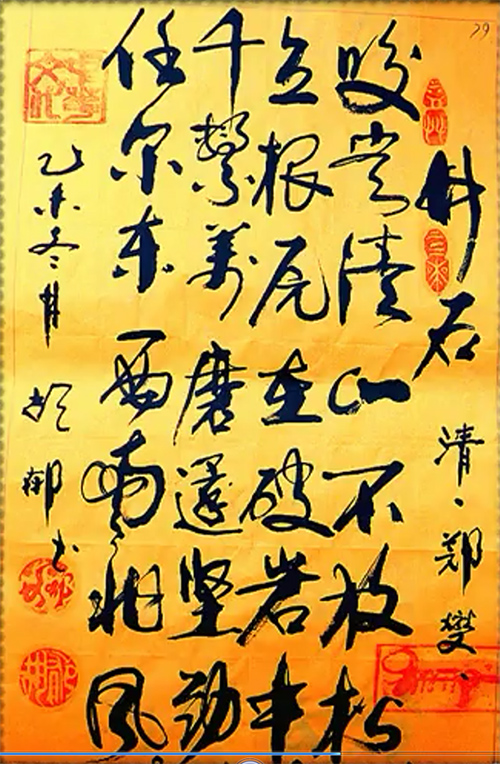 79
竹石 清、郑燮、
咬定清山不放松
立根原在破岩中
千擊萬磨還坚劲
任尔东西南北风
乙未冬月
书